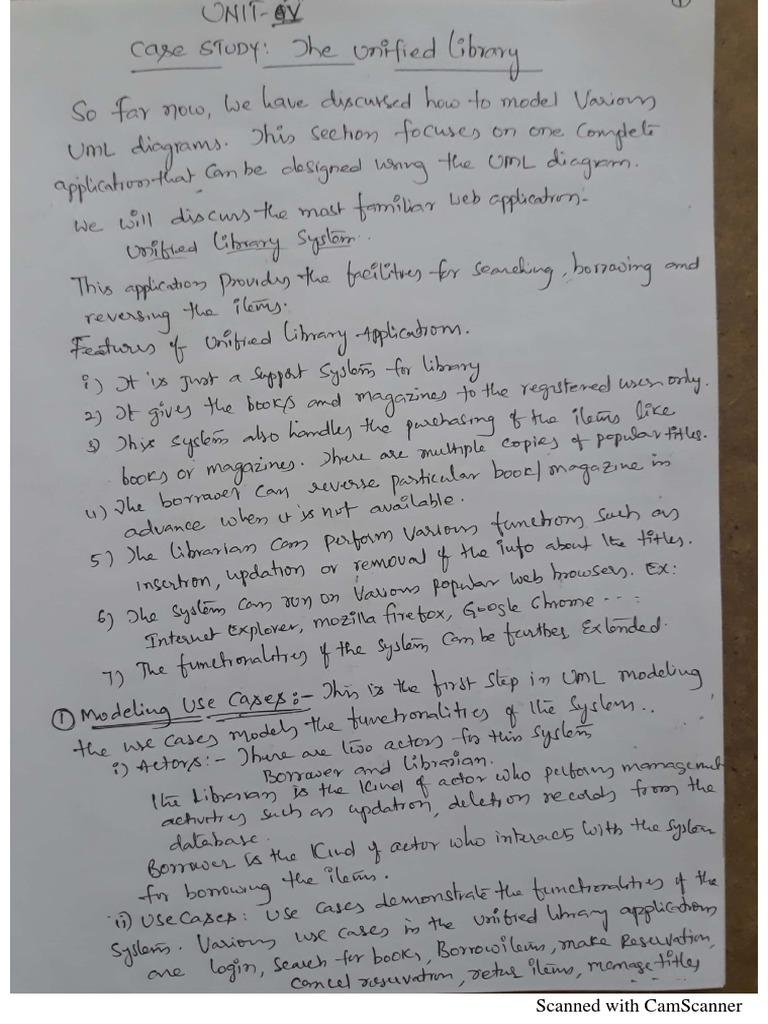 UNIT-IV
1
Case STUDY: The Unified Library
So far now, We have discussed how to model Various
UML diagrams. This section focuses on one Complete
application that can be designed using the UML diagram.
We will discuss the most familiar web application-
Unified Library System.
This application provides the facilities for searching, borrowing and
reversing the items.
Features of Unified Library Application.
i) It is just a support system for library
2) It gives the books and magazines to the registered users only.
3) This system also handles the purchasing of the items like
books or magazines. There are multiple copies of popular titles.
4) The borrower can reverse particular book/magazine in
advance when it is not available.
5) The librarian can perform various functions such as
insertion, updation or removal of the info about the titles.
6) The system can run on Various popular web browsers. Ex:
Internet Explorer, mozilla firefox, Google Chrome ... :
7) The functionalities of the system can be further extended.
① Modeling Use Cases:- This is the first step in UML modeling
the use cases models the functionalities of the system..
i) Actors:- There are two actors for this system
Borrower and Librarian.
The Librarian is the kind of actor who perform management
activities such as updation, deletion records from the
database.
Borrower is the kind of actor who interacts with the system
for borrowing the items.
ii) Use Cases: Use cases demonstrate the functionalities of the
system. Various use cases in the unified library applications
are login, search for books, Borrow items, make Reservation,
cancel reservation, items, manage titles
Scanned with CamScanner